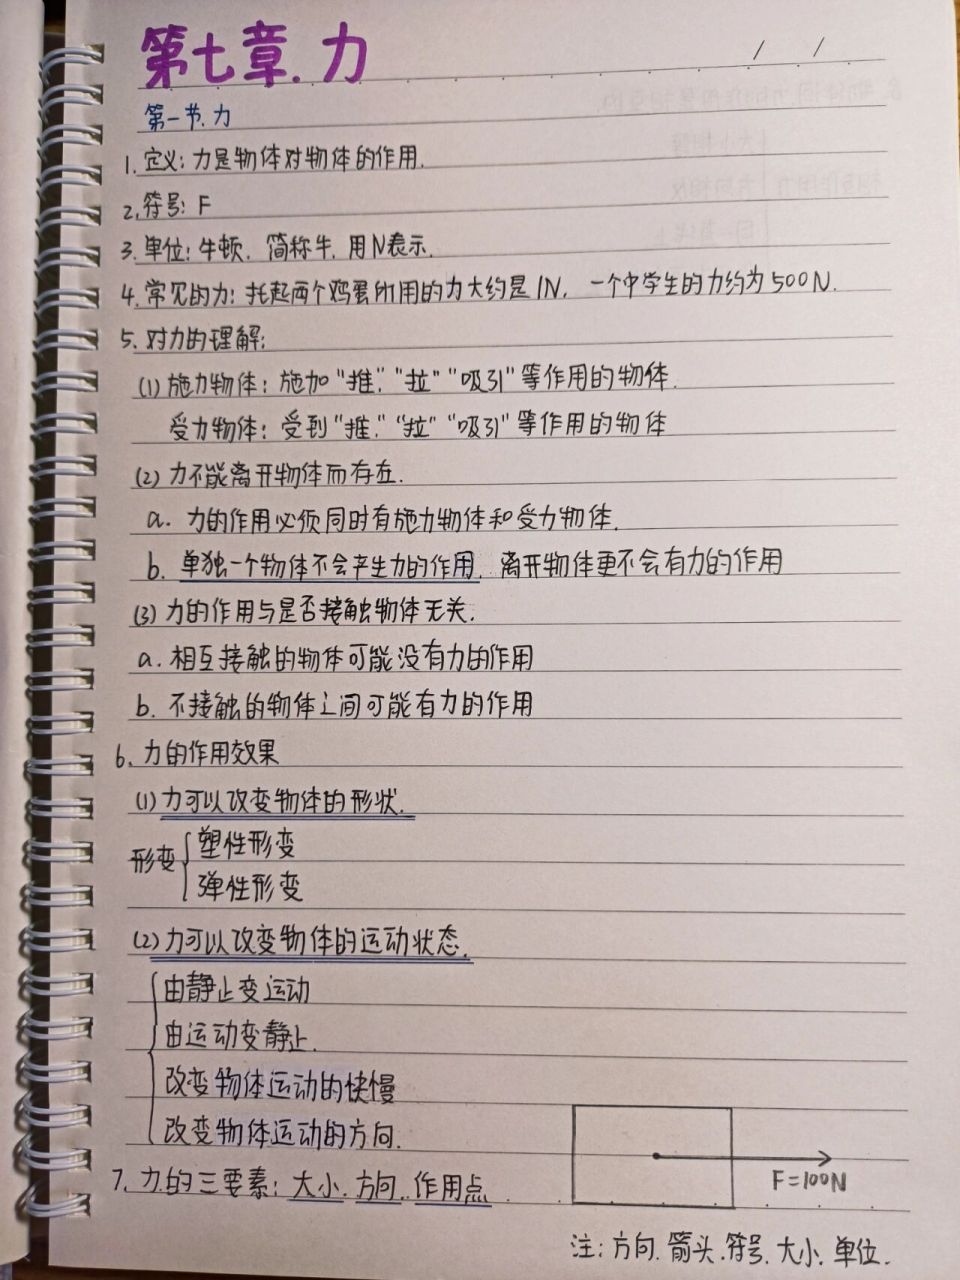 第七章.力
/ /
第一节.力
1.定义:力是物体对物体的作用.
2.符号:F
3.单位:牛顿.简称牛.用N表示.
4.常见的力:托起两个鸡蛋所用的力大约是1N.一个中学生的力约为500N.
5.对力的理解:
(1)施力物体:施加"推""拉""吸引"等作用的物体.
受力物体:受到"推""拉""吸引"等作用的物体
(2)力不能离开物体而存在.
a.力的作用必须同时有施力物体和受力物体.
b.单独一个物体不会产生力的作用.离开物体更不会有力的作用
(3)力的作用与是否接触物体无关.
a.相互接触的物体可能没有力的作用
b.不接触的物体之间可能有力的作用
6.力的作用效果
(1)力可以改变物体的形状.
形变
塑性形变
弹性形变
(2)力可以改变物体的运动状态.
由静止变运动
由运动变静止.
改变物体运动的快慢
改变物体运动的方向.
7.力的三要素:大小.方向.作用点
F=100N
注:方向.箭头.符号.大小.单位.